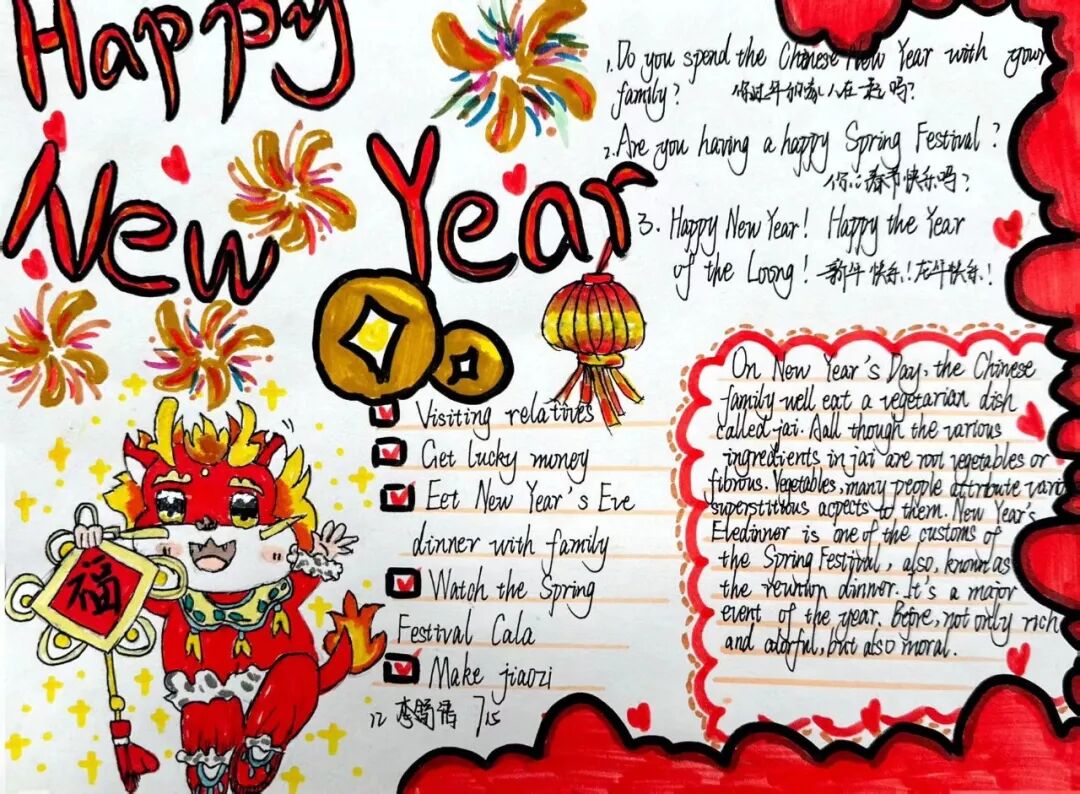 Happy
New Year
1. Do you spend the Chinese New Year with your
family?
2. Are you having a happy Spring Festival?
你的春节快乐吗?
3. Happy New Year! Happy the Year
of the Loong! 新年快乐!龙年快乐!
Visiting relatives
Get lucky money
Eet New Year's Eve
dinner with family
Watch the Spring
Festival Cala
Make jiaozi
福
On New Year's Day, the Chinese
family well eat a vegetarian dish
called jai. Aall though the various
ingredients in jai are root vegetables or
fibrous. Vegetables, many people attribute vario
superstitious acpects to them. New Year's
Evedinner is one of the customs of
the Spring Festival, also, known as
the reunion dinner. It's a major
event of the year. Before, not only rich
and olorful, but also moral.